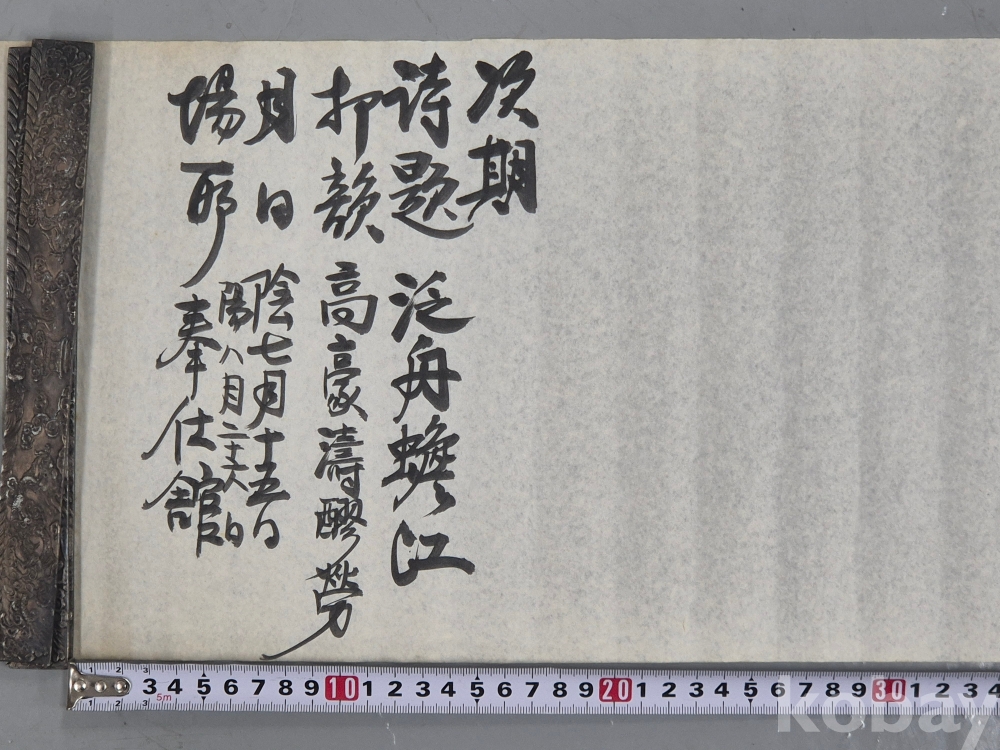 次期
诗题 泛舟蟾江
押韻 高豪濤醪勞
月日 陰七月十五日
陽八月二十六日
場所 奉仕館
1 2 3
3 4 5 6 7 8 9 10 1 2 3 4 5 6 7 8 9 20 1 2 3 4 5 6 7 8 9 30 1 2 3 4
5m
1 2 3
kobay